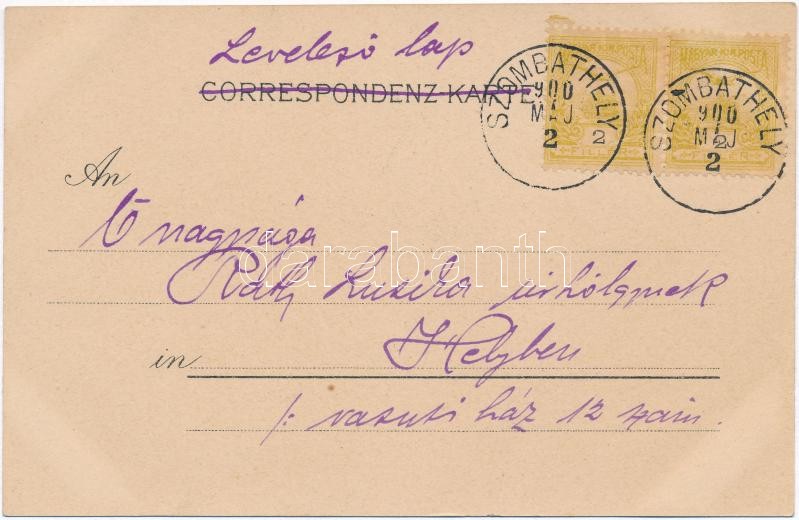 Levelező lap
CORRESPONDENZ-KARTE
MAGYAR KIR. POSTA
MAGYAR KIR. POSTA
SZOMBATHELY
900
MÁJ
2
2
FILLÉR
SZOMBATHELY
900
MÁJ
2
2
FILLÉR
An
Ő nagysága
darabanth
Ráth Luzila úrhölgynek
in Helyben
/: vasuti ház 12 szám.